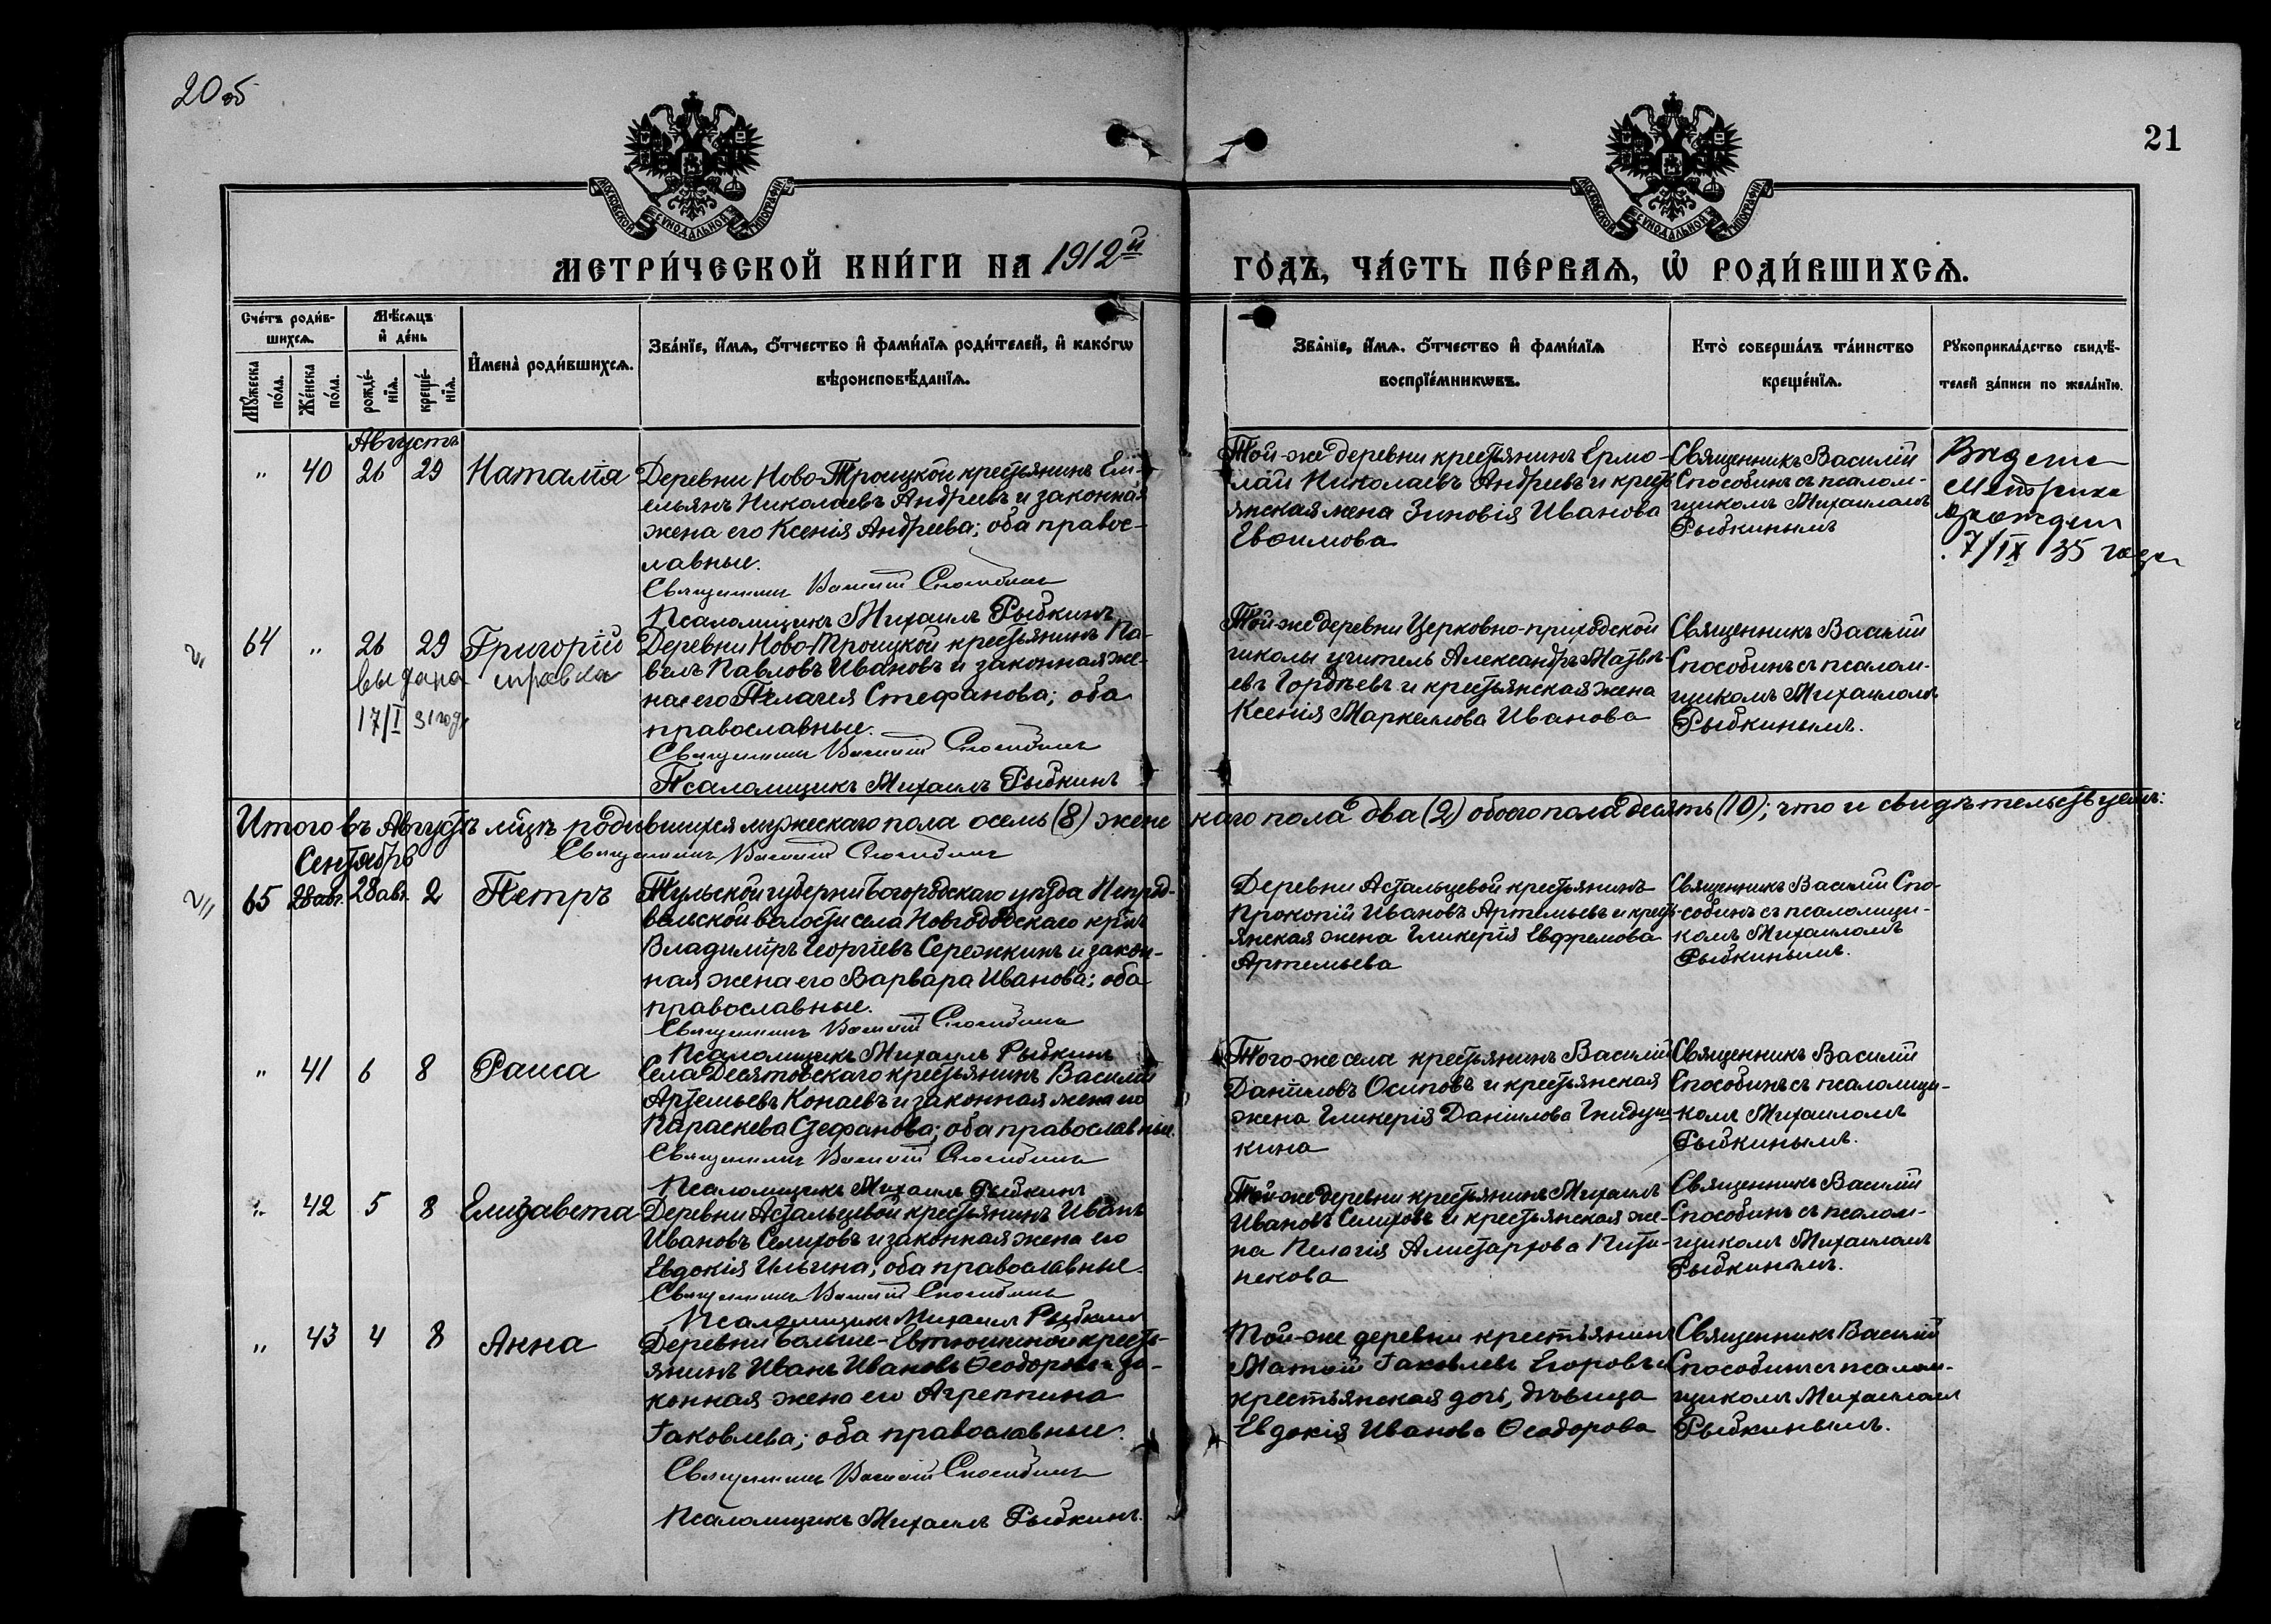 20об
21
МОСКОВСКОЙ СѴНОДАЛЬНОЙ ТИПОГРАФІИ
МОСКОВСКОЙ СѴНОДАЛЬНОЙ ТИПОГРАФІИ
МЕТРИ́ЧЕСКОЙ КНИ́ГИ НА 1912й ГО́ДЪ, ЧА́СТЬ ПЕ́РВАѦ, Ѡ҆ РОДИ́ВШИХСѦ.
Сче́тъ роди́в-
шихсѧ.
Мꙋ́жеска по́ла.
Же́нска по́ла.
Мѣ́сѧцъ
и҆ де́нь
рожде́-
нїѧ.
креще́-
нїѧ.
И҆мена̀ роди́вшихсѧ.
Зва́нїе, и҆́мѧ, ѻ҆́тчество и҆ фами́лїѧ роди́телей, и҆ како́гѡ
вѣроисповѣ́данїѧ.
Зва́нїе, и҆́мѧ, ѻ҆́тчество и҆ фами́лїѧ
воспрїе́мникѡвъ.
Кто̀ соверша́лъ та́инство
креще́нїѧ.
Рꙋкоприкла́дство свидѣ́-
телей за́писи по жела́нїю.
Августъ
" 40 26 29 Наталія
Деревни Ново-Троицкой крестьянинъ Ем-
ельянъ Николаевъ Андреевъ и законная
жена его Ксенія Андреева; оба правос-
лавные.
Священникъ Василій Способинъ
Псаломщикъ Михаилъ Рыбкинъ
Той-же деревни крестьянинъ Ермо-
лай Николаевъ Андреевъ и крест-
янская жена Зиновія Иванова
Евѳимова
Священникъ Василій
Способинъ съ псалом-
щикомъ Михаиломъ
Рыбкинымъ
7/IX 35 года
64 " 26 29 Григорій
выдана справка
17/I 31 год.
Деревни Ново-Троицкой крестьянинъ Па-
велъ Павловъ Ивановъ и законная же-
на его Пелагея Стефанова; оба
православные.
Священникъ Василій Способинъ
Псаломщикъ Михаилъ Рыбкинъ
Той-же деревни Церковно-приходской
школы учитель Александръ Матвѣ-
евъ Гордѣевъ и крестьянская жена
Ксенія Маркелова Иванова
Священникъ Василій
Способинъ съ псалом-
щикомъ Михаиломъ
Рыбкинымъ.
Итого въ Августѣ мцѣ родившихся мужескаго пола осемь (8) женскаго пола два (2) обоего пола десять (10); что и свидѣтельствуемъ:
Священникъ Василій Способинъ
Сентябрь
65 28 авг. 28 авг. 2 Петръ
Тульской губерніи Богородскаго уѣзда Непряд-
вельской волости села Новгородскаго кр-нъ
Владиміръ Георгіевъ Сережкинъ и закон-
ная жена его Варвара Иванова; оба
православные.
Священникъ Василій Способинъ
Псаломщикъ Михаилъ Рыбкинъ
Деревни Астальцевой крестьянинъ
Прокопій Ивановъ Артемьевъ и крест-
янская жена Гликерія Евфремова
Артемьева
Священникъ Василій Спо-
собинъ съ псаломщи-
комъ Михаиломъ
Рыбкинымъ.
" 41 6 8 Раиса
Села Десятовскаго крестьянинъ Василій
Артемьевъ Конаевъ и законная жена его
Параскева Стефанова; оба православные.
Священникъ Василій Способинъ
Псаломщикъ Михаилъ Рыбкинъ
Того-же села крестьянинъ Василій
Даніиловъ Осиповъ и крестьянская
жена Гликерія Даніилова Гнидуш-
кина
Священникъ Василій
Способинъ съ псаломщи-
комъ Михаиломъ
Рыбкинымъ.
" 42 5 8 Елизавета
Деревни Астальцевой крестьянинъ Иванъ
Ивановъ Селиховъ и законная жена его
Евдокія Ильина; оба православные.
Священникъ Василій Способинъ
Псаломщикъ Михаилъ Рыбкинъ
Той-же деревни крестьянинъ Михаилъ
Ивановъ Селиховъ и крестьянская же-
на Пелагія Алистархова
Священникъ Василій
Способинъ съ псалом-
щикомъ Михаиломъ
Рыбкинымъ.
" 43 4 8 Анна
Деревни Больше-Евтюшкиной кресть-
янинъ Иванъ Ивановъ Ѳеодоровъ и за-
конная жена его Агреппина
Іаковлева; оба православные.
Священникъ Василій Способинъ
Псаломщикъ Михаилъ Рыбкинъ.
Той-же деревни крестьянинъ
Матѳій Іаковлевъ Егоровъ и
крестьянская дочь, дѣвица
Евдокія Иванова Ѳеодорова
Священникъ Василій
Способинъ съ псалом-
щикомъ Михаиломъ
Рыбкинымъ.